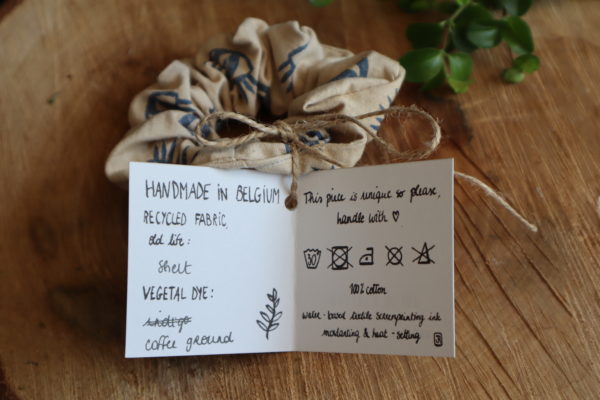 HANDMADE IN BELGIUM
RECYCLED FABRIC.
old life:
Shelt
VEGETAL DYE:
indigo
coffee ground
This piece is unique so please,
handle with ♡
30
100% cotton
water-based textile screenprinting ink
mordanting & heat-setting